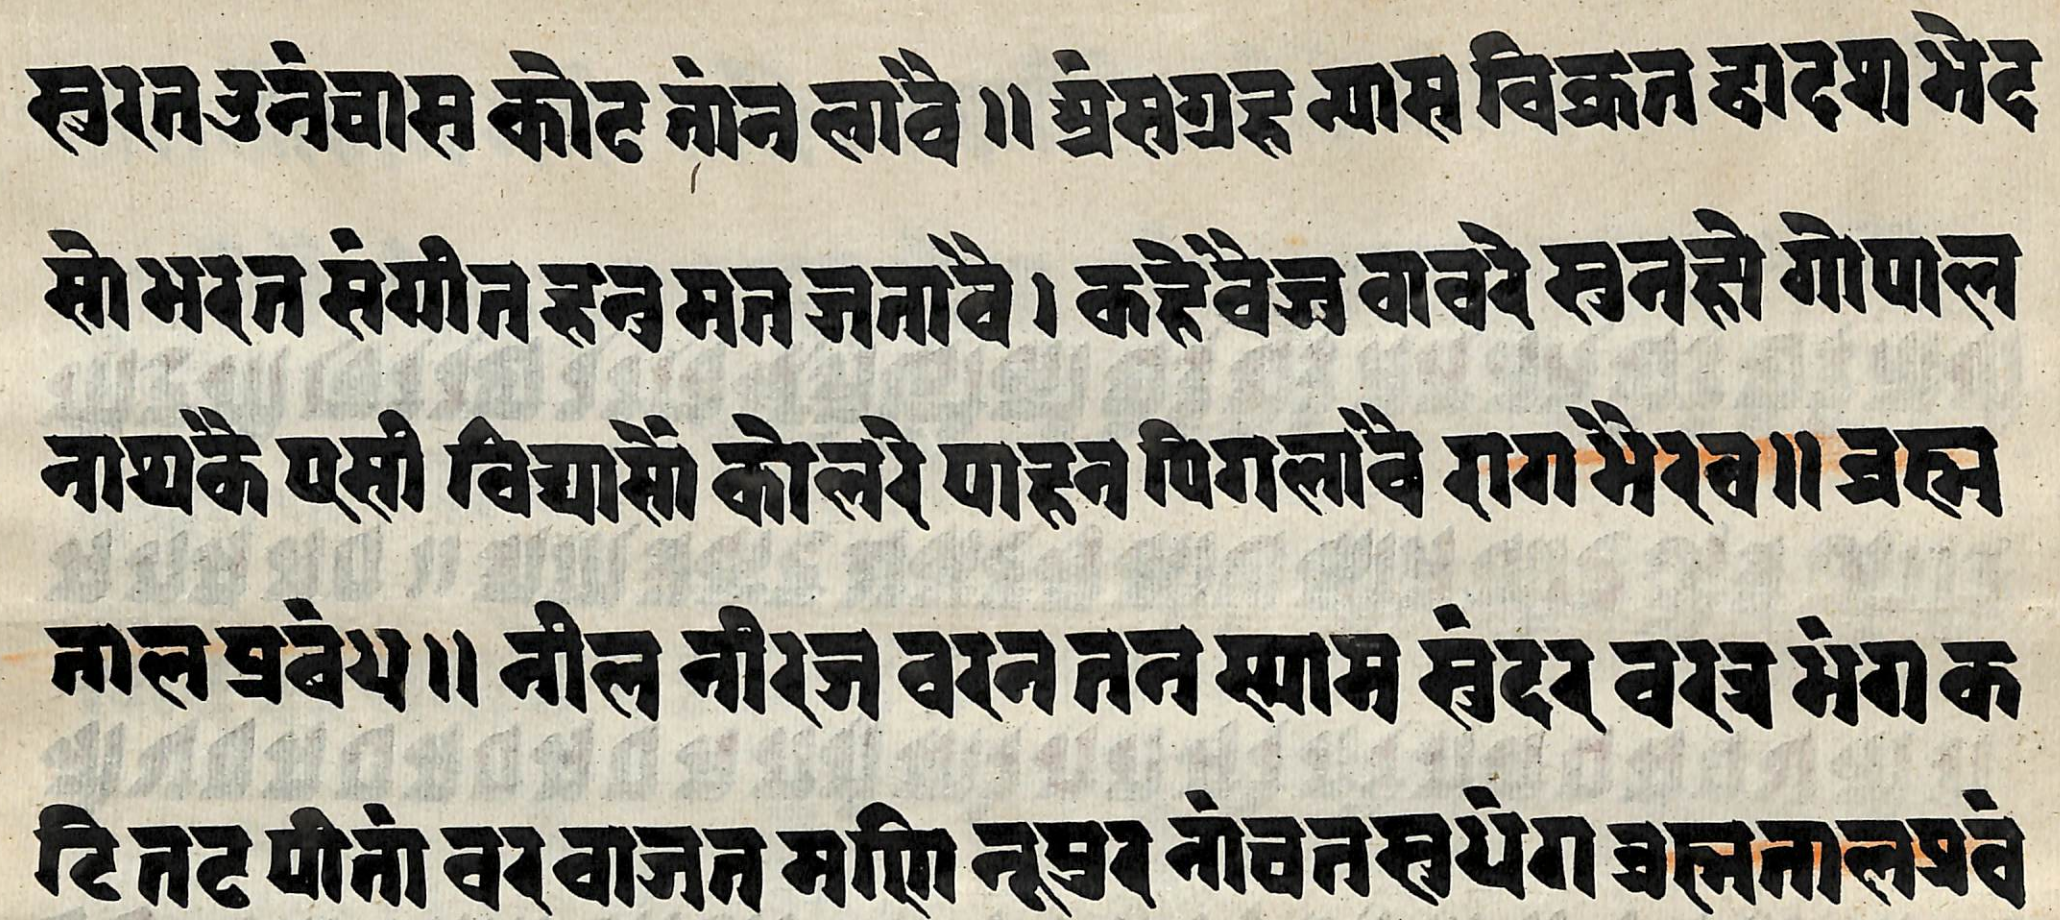 सुरत उनंचास कोट तांन लावै ॥ अंसग्रह न्यास विक्रत द्वादश भेद
सो भरत संगीत हनुमत जतावै । कहै वैजु वावरे सुनहो गोपाल
नायकै एसी विद्यासौं कोलरे पाहन पिगलावै राग भैरव ॥ ब्रह्म
ताल प्रबंध ॥ नील नीरज वरन तन स्याम सुंदर वरत्र भंग क
टि तट पीतां वर वाजत मणि नूपुर नांचत सुधंग ब्रह्मताल प्रवं